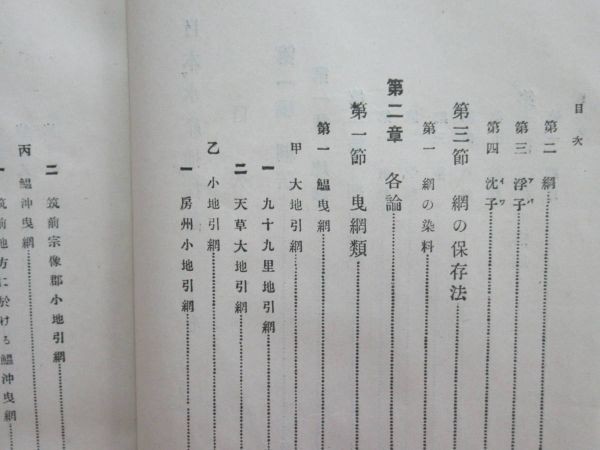 目次
第二 網
第三 浮子アバ
第四 沈子イワ
第三節 網の保存法
第一 網の染料
第二章 各論
第一節 曳網類
第一 鰮曳網
甲 大地引網
一 九十九里地引網
二 天草大地引網
乙 小地引網
一 房州小地引網
二 筑前宗像郡小地引網
丙 鰮沖曳網
一 筑前地方に於ける鰮沖曳網